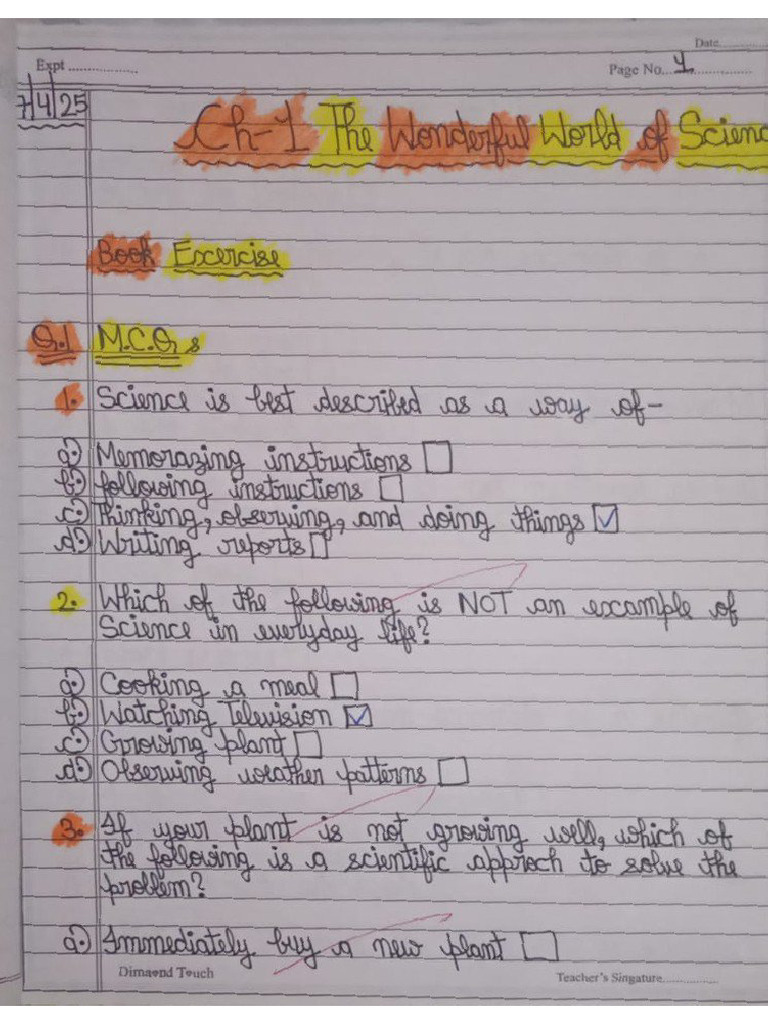 Date..............
Expt ..................
Page No...1...............
7/4/25
Ch-1 The Wonderful World of Scienc
Book Excercise
Q.1 M.C.Q s
1. Science is best described as a way of-
a.) Memorazing instructions
b.) following instructions
c.) Thinking, observing, and doing things ✓
d.) Writing reports
2. Which of the following is NOT an example of
Science in everyday life?
a.) Cooking a meal
b.) Watching Television ✓
c.) Growing plant
d.) Observing weather patterns
3. If your plant is not growing well, which of
the following is a scientific approch to solve the
problem?
a.) Immediately buy a new plant
Dimaond Touch
Teacher's Singature..................